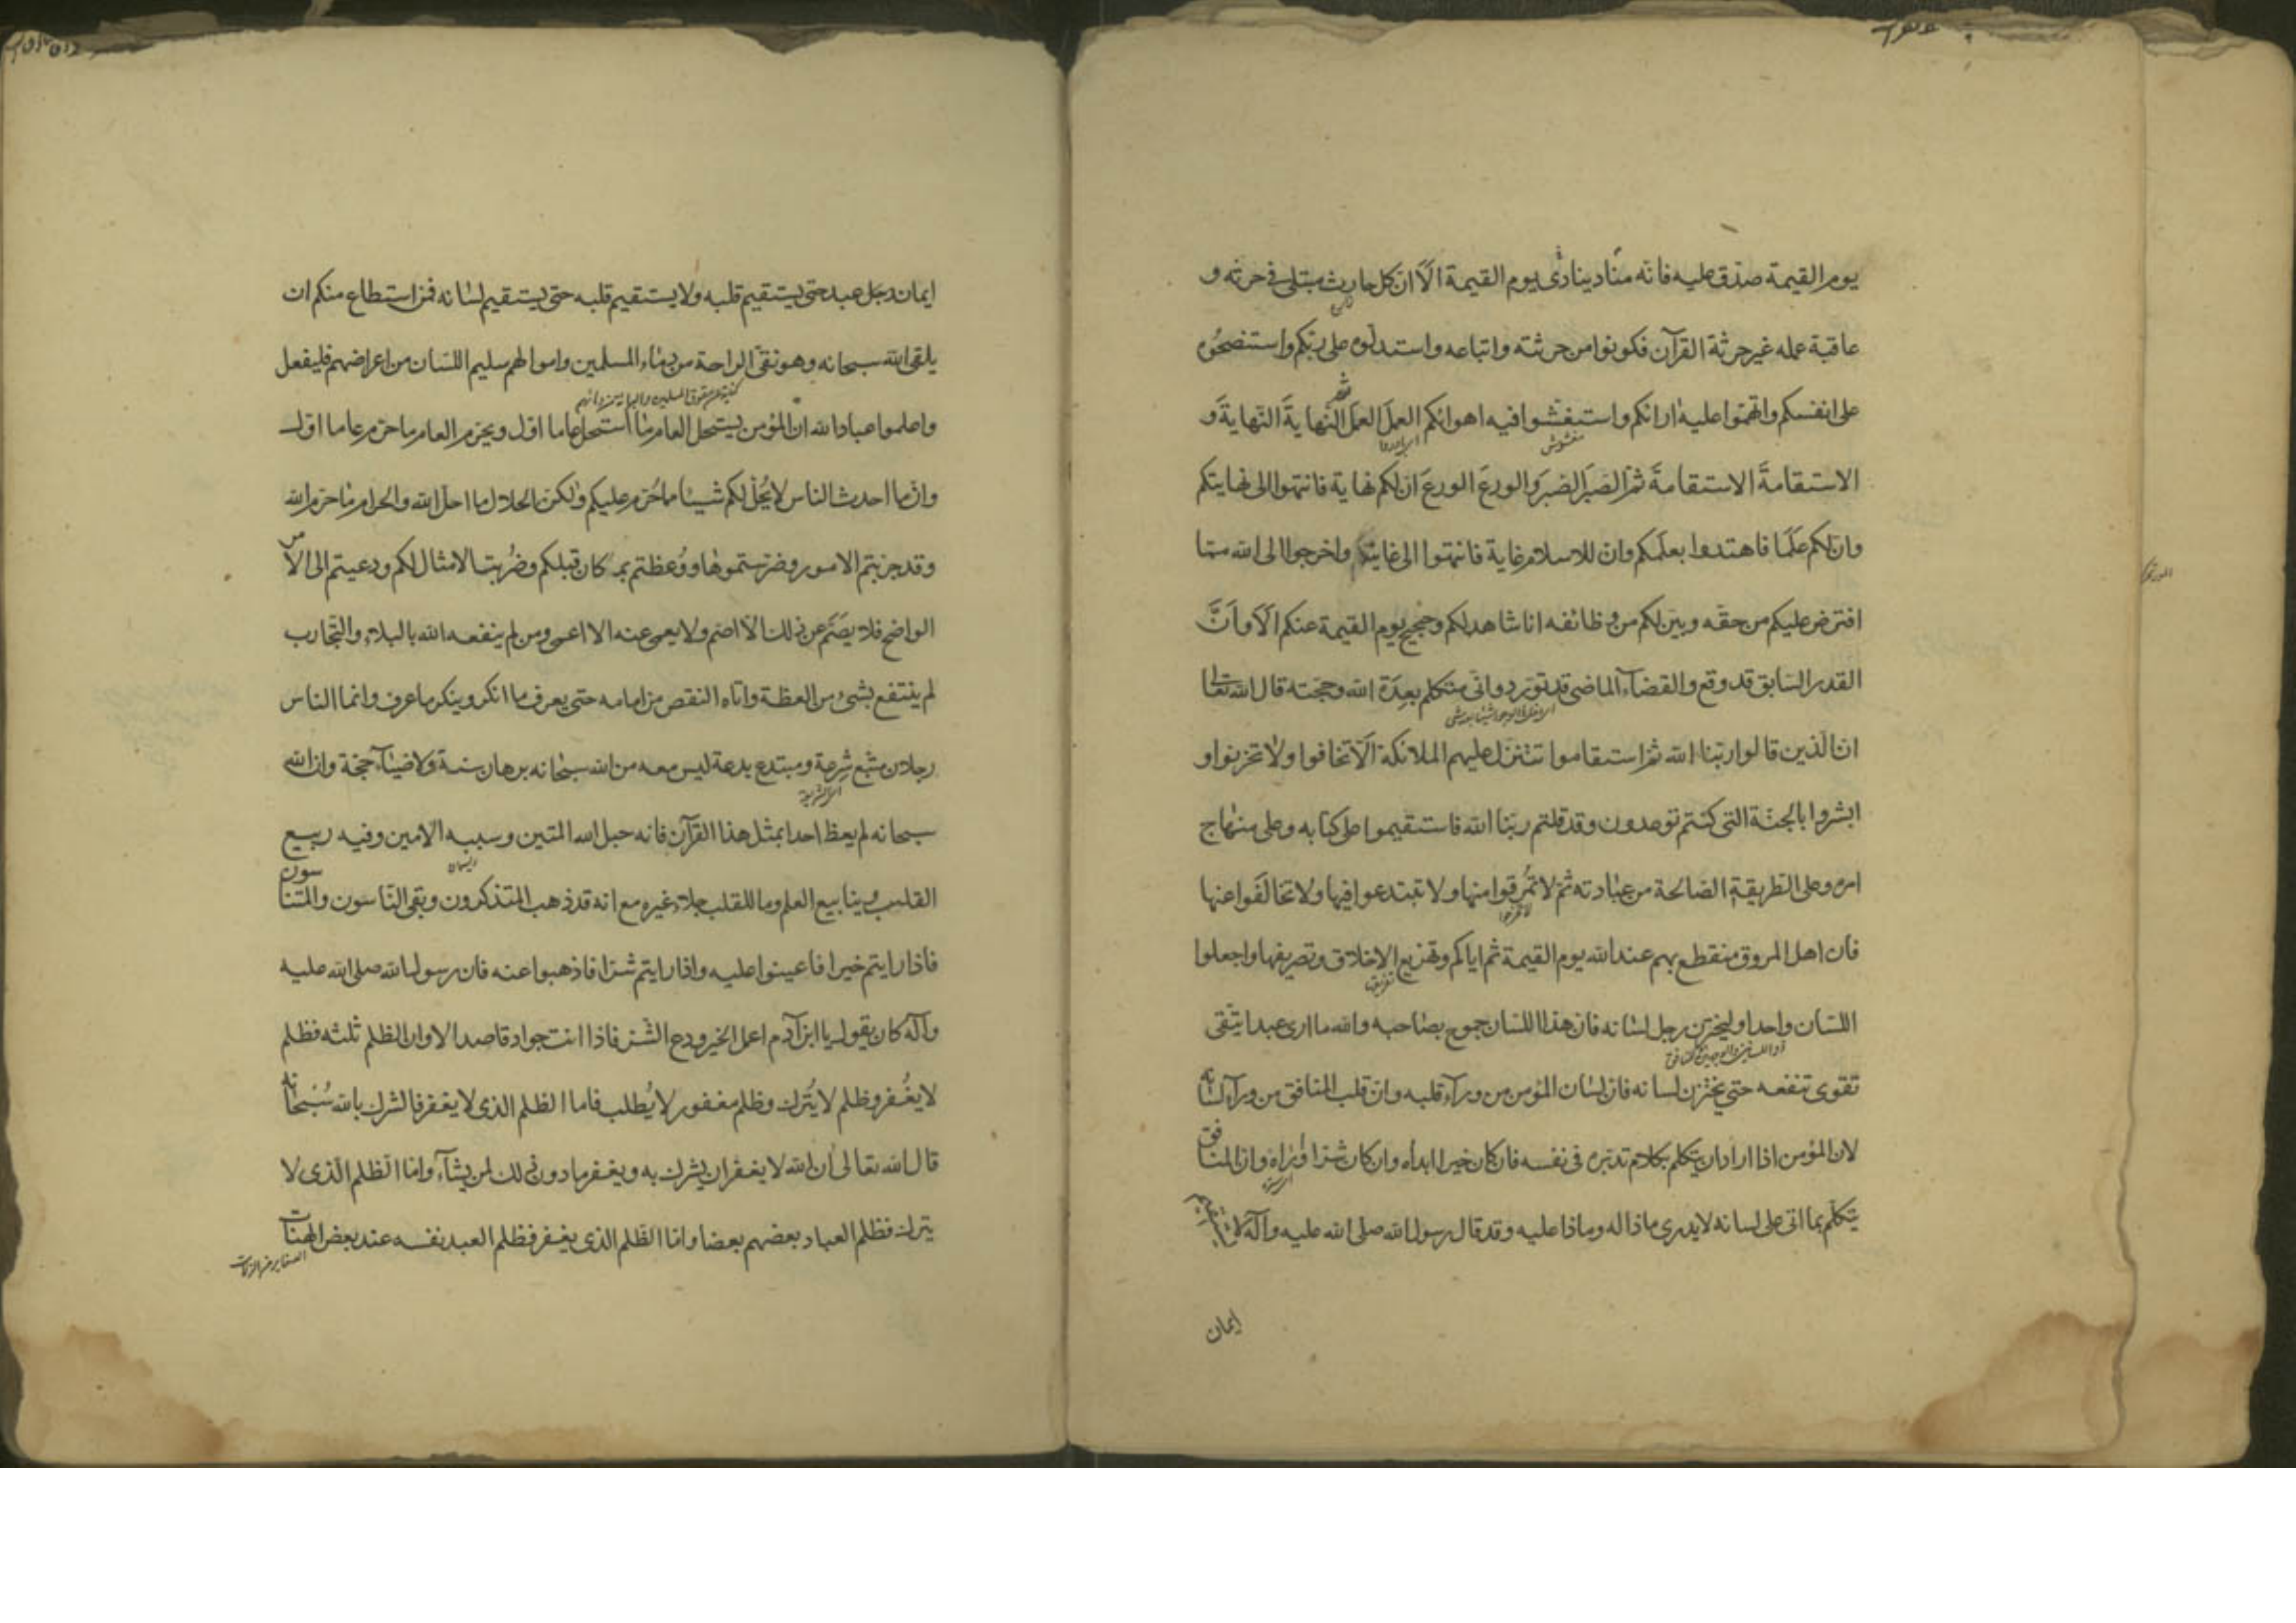 يوم القيمة صدق عليه فانه منادينادى يوم القيمة الا ان كل حارث مبتلى فى حرثه و
عاقبة عمله غير حرثة القرآن فكونوا من حرثته واتباعه واستدلوه على ربكم واستنصحوه
على انفسكم واتهموا عليه ارائكم واستغشوا فيه اهوائكم العملَ العملَ ثم النهايةَ النهايةَ و
مغشوش
الاستقامةَ الاستقامةَ ثم الصبرَ الصبرَ والورعَ الورعَ ان لكم نهاية فانتهوا الى نهايتكم
وان لكم علَمًا فاهتدوا بعلمكم وان للاسلام غاية فانتهوا الى غايته واخرجوا الى الله مما
افترض عليكم من حقه وبيّن لكم من وظائفه انا شاهد لكم وحجيج يوم القيمة عنكم الَا وانَّ
القدر السابق قد وقع والقضاء الماضى قد تورد وانى متكلم بعِدَة الله وحجته قال الله تعالى
ان الذين قالوا ربنا الله ثم استقاموا تتنزل عليهم الملائكة الّا تخافوا ولا تحزنوا و
ابشروا بالجنة التى كنتم توعدون وقد قلتم ربنا الله فاستقيموا على كتابه وعلى منهاج
امره وعلى الطريقة الصالحة من عبادته ثم لا تمرقوا منها ولا تبتدعوا فيها ولا تخالفوا عنها
فان اهل المروق منقطع بهم عند الله يوم القيمة ثم اياكم وتهزيع الاخلاق وتصريفها واجعلوا
اللسان واحدا وليخزن رجل لسانه فان هذا اللسان جموح بصاحبه والله ما ارى عبدا يتقى
تقوى تنفعه حتى يختزن لسانه فان لسان المؤمن من ورآء قلبه وان قلب المنافق من ورآء لسانه
لان المؤمن اذا اراد ان يتكلم بكلام تدبره فى نفسه فان كان خيرا ابداه وان كان شرا وٰراه وان المنافق
يتكلم بما اتى على لسانه لا يدرى ماذا له وماذا عليه وقد قال رسول الله صلى الله عليه وآله لا يستقيم
ايمان
ايمان رجل عبد حتى يستقيم قلبه ولا يستقيم قلبه حتى يستقيم لسانه فمن استطاع منكم ان
يلقى الله سبحانه وهو نقىّ الراحة من دماء المسلمين واموالهم سليم اللسان من اعراضهم فليفعل
واعلموا عباد الله ان المؤمن يستحل العام ما استحل عاما اول ويحرم العام ما حرم عاما اول
وان ما احدث الناس لا يُحلّ لكم شيئا مما حُرم عليكم ولكن الحلال ما احل الله والحرام ما حرم الله
وقد جربتم الامور وضرستموها ووُعظتم بمن كان قبلكم وضُربت الامثال لكم ودعيتم الى الامر
الواضح فلا يصَمّ عن ذلك الا اصم ولا يعمى عنه الا اعمى ومن لم ينفعه الله بالبلاء والتجارب
لم ينتفع بشىء من العظة واتاه النقص من امامه حتى يعرف ما انكر وينكر ما عرف وانما الناس
رجلان متبع شِرعة ومبتدع بدعة ليس معه من الله سبحانه برهان سنة ولا ضيآء حجة وان الله
سبحانه لم يعظ احدا بمثل هذا القرآن فانه حبل الله المتين وسببه الامين وفيه ربيع
ريسمان
القلب وينابيع العلم وما للقلب جلاء غيره مع انه قد ذهب المتذكرون وبقى الناسون والمتناسون
فاذا رايتم خيرا فاعينوا عليه واذا رايتم شرا فاذهبوا عنه فان رسول الله صلى الله عليه
وآله كان يقول يا ابن آدم اعمل الخير ودع الشر فاذا انت جواد قاصد الا وان الظلم ثلثه فظلم
لا يغُفر وظلم لا يُترك وظلم مغفور لا يُطلب فاما الظلم الذى لا يغفر فالشرك بالله سُبحانه
قال الله تعالى ان الله لا يغفر ان يشرك به ويغفر ما دون ذلك لمن يشآء واما الظلم الذى لا
يترك فظلم العباد بعضهم بعضا واما الظلم الذى يغفر فظلم العبد نفسه عند بعض الهنات